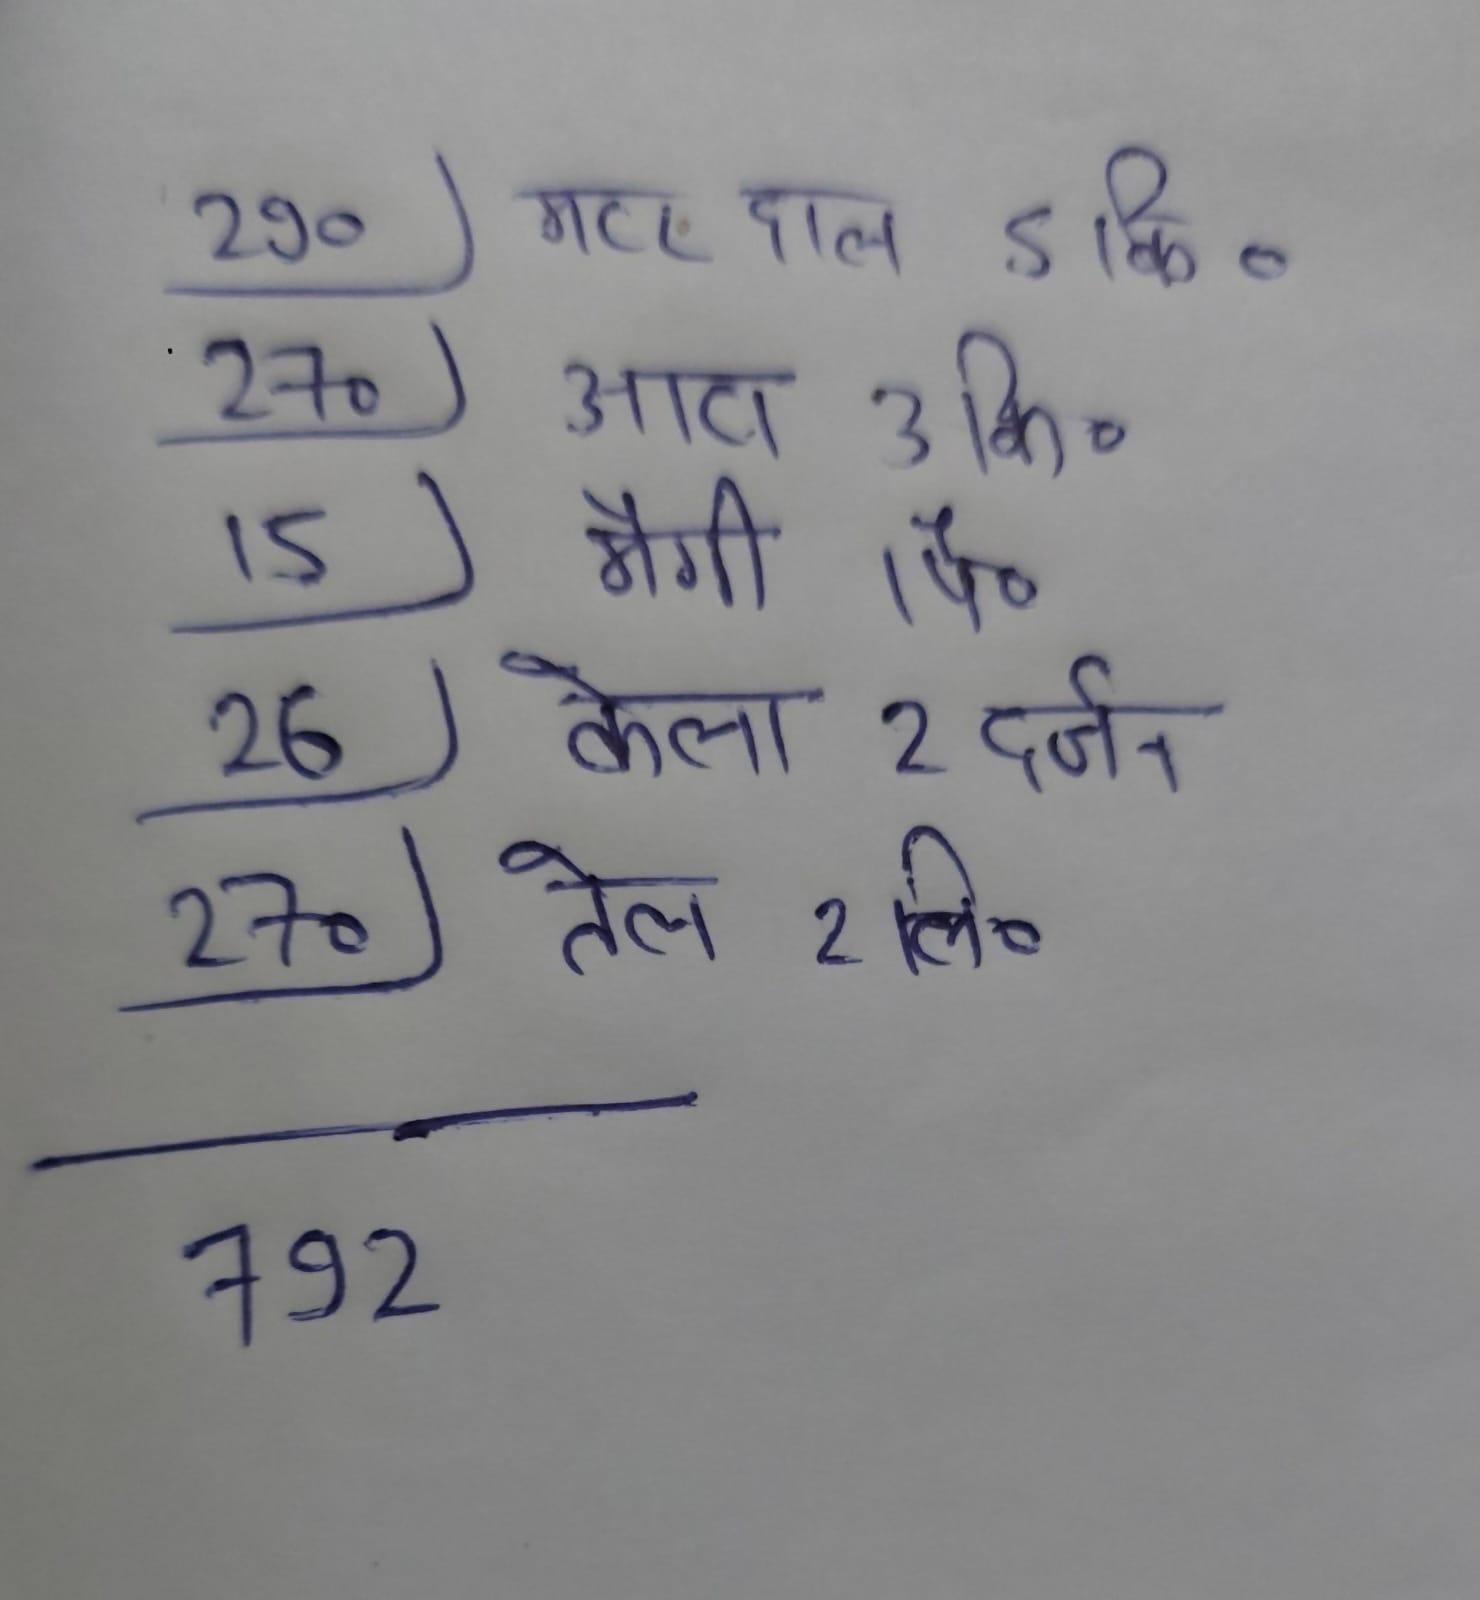 290) मटर दाल 5 कि०
270) आटा 3 कि०
15) मैगी 1 पै०
26) केला 2 दर्जन
270) तेल 2 लि०
792